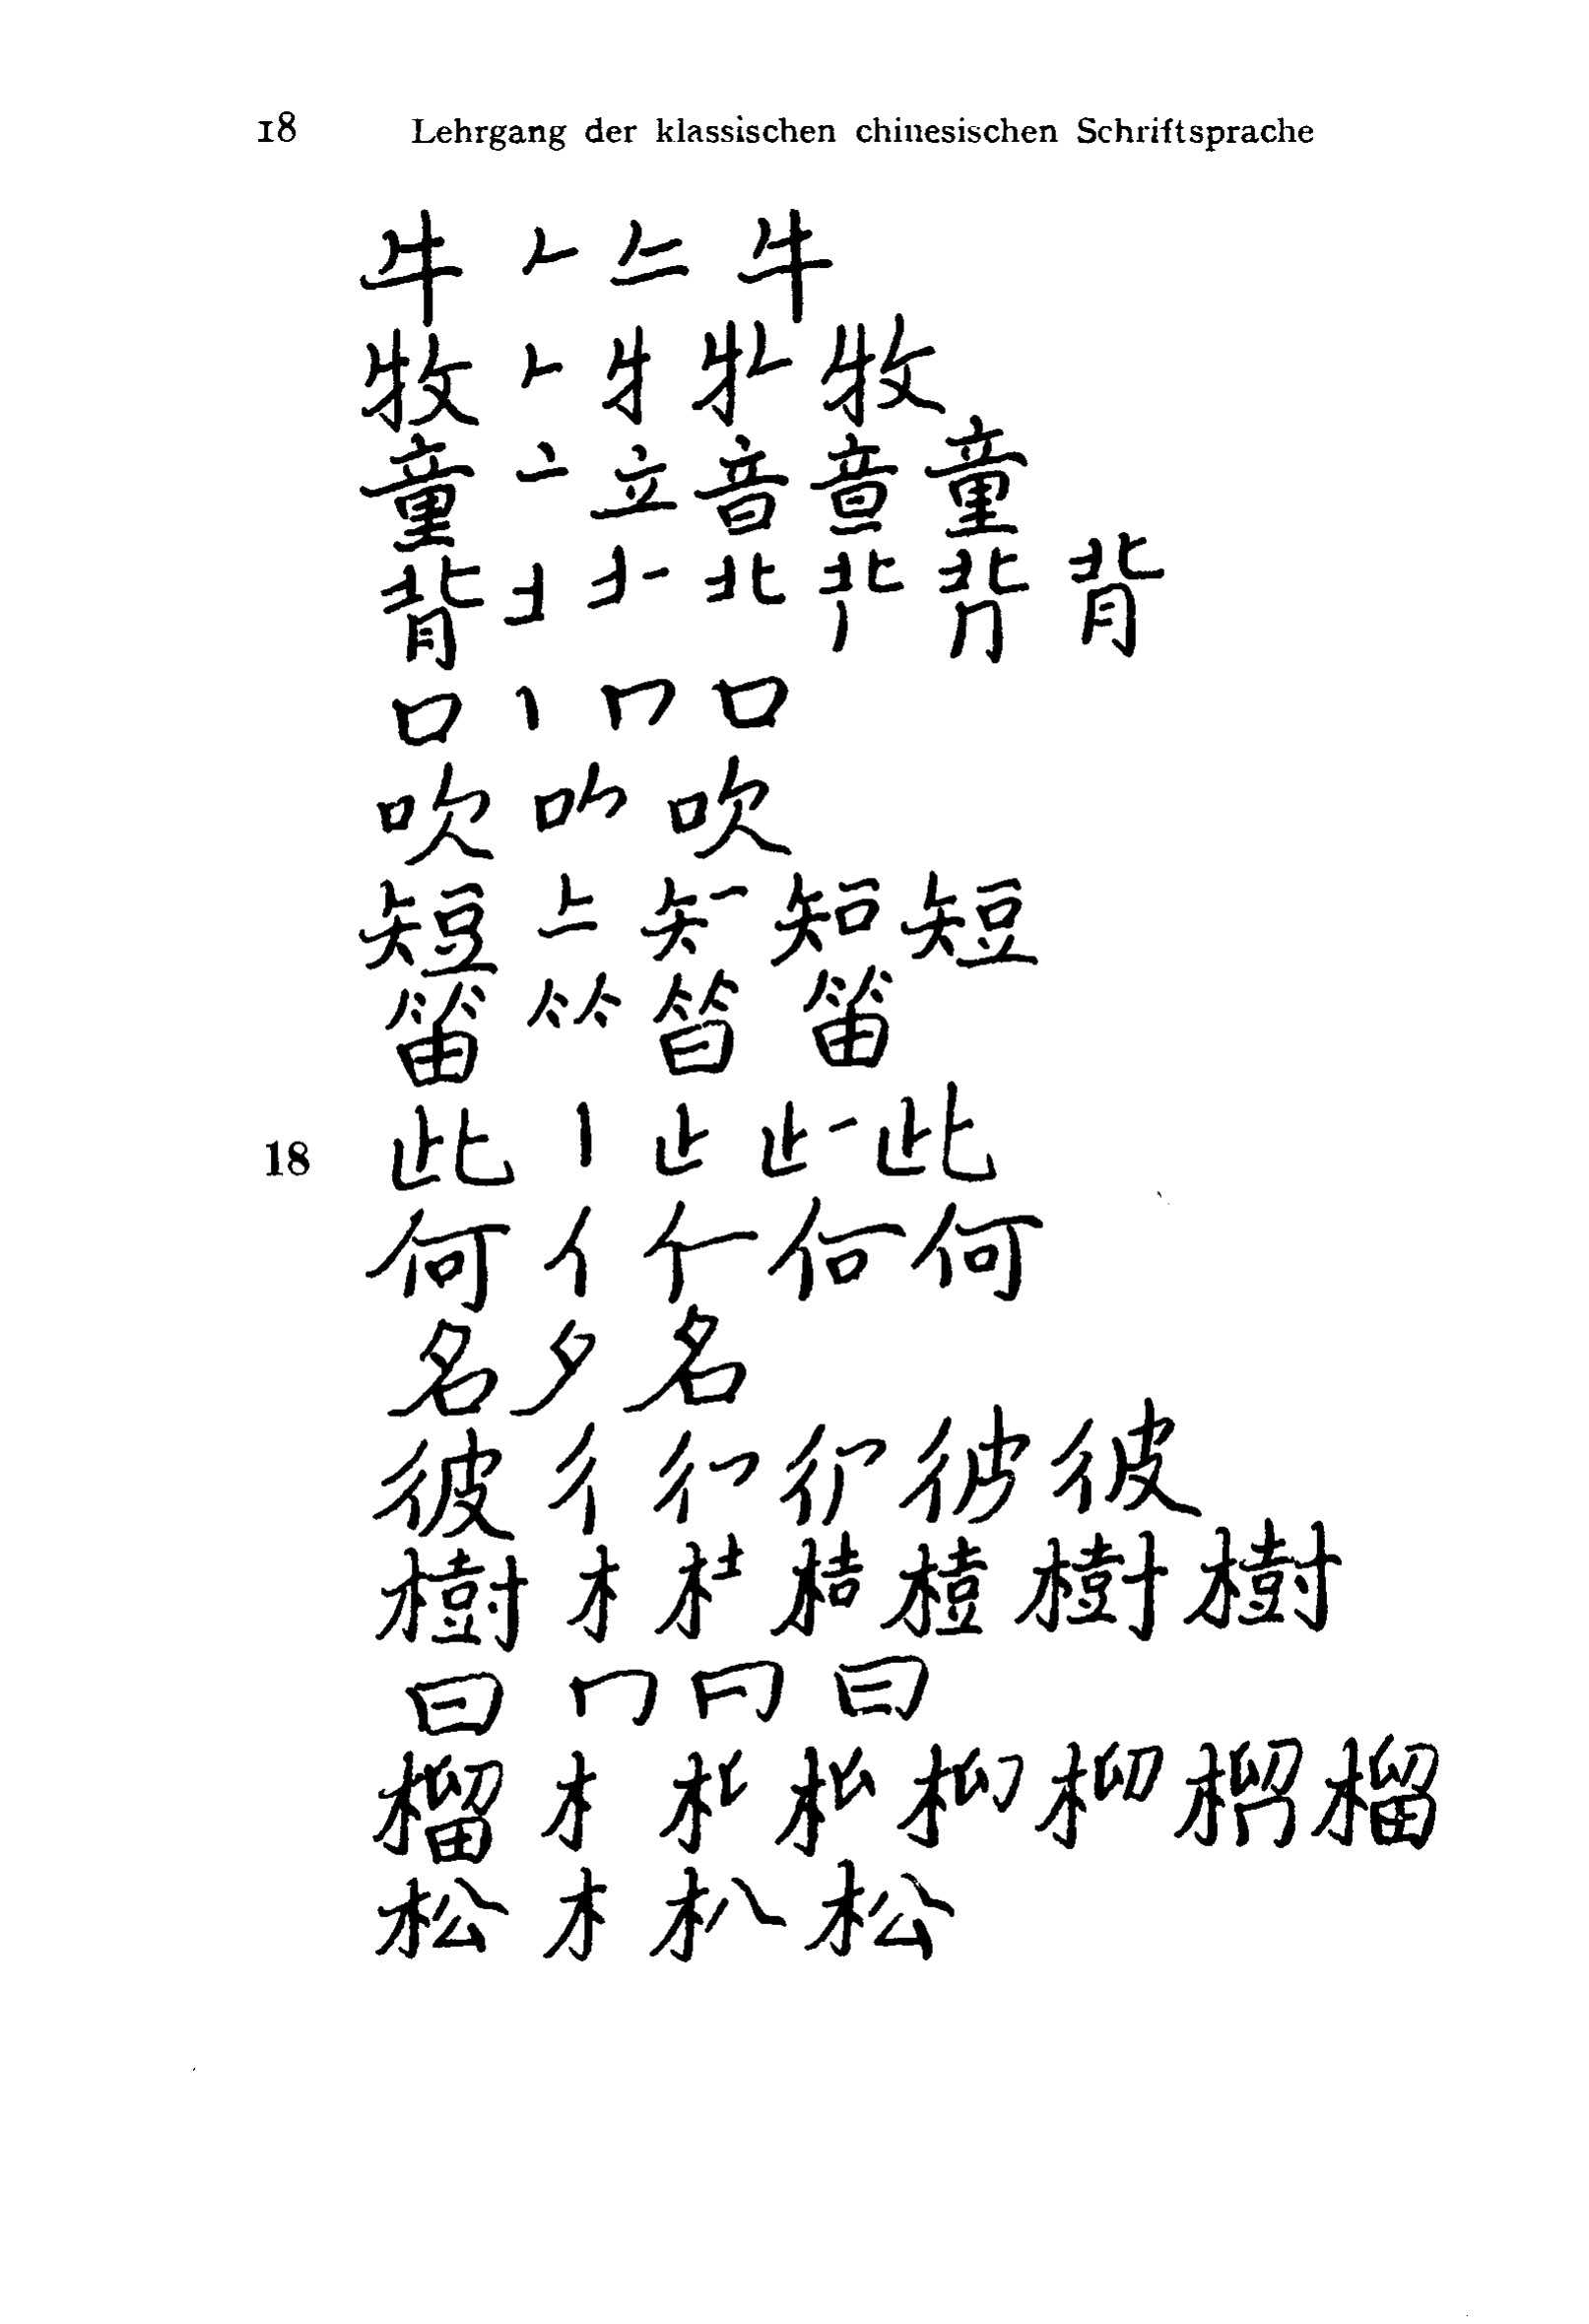 18 Lehrgang der klassischen chinesischen Schriftsprache
牛 𠂉 𠂒 牛
牧 𠂉 牜 牧
童 亠 立 音 童
背 北 背
口 丨 冂 口
吹 吹
短 知 短
笛 𥫗 笛
18 此 丨 止 此
何 亻 何
名 夕 名
彼 彳 彼
樹 木 桔 樹 樹
曰 冂 曰
榴 木 榴
松 木 朳 松